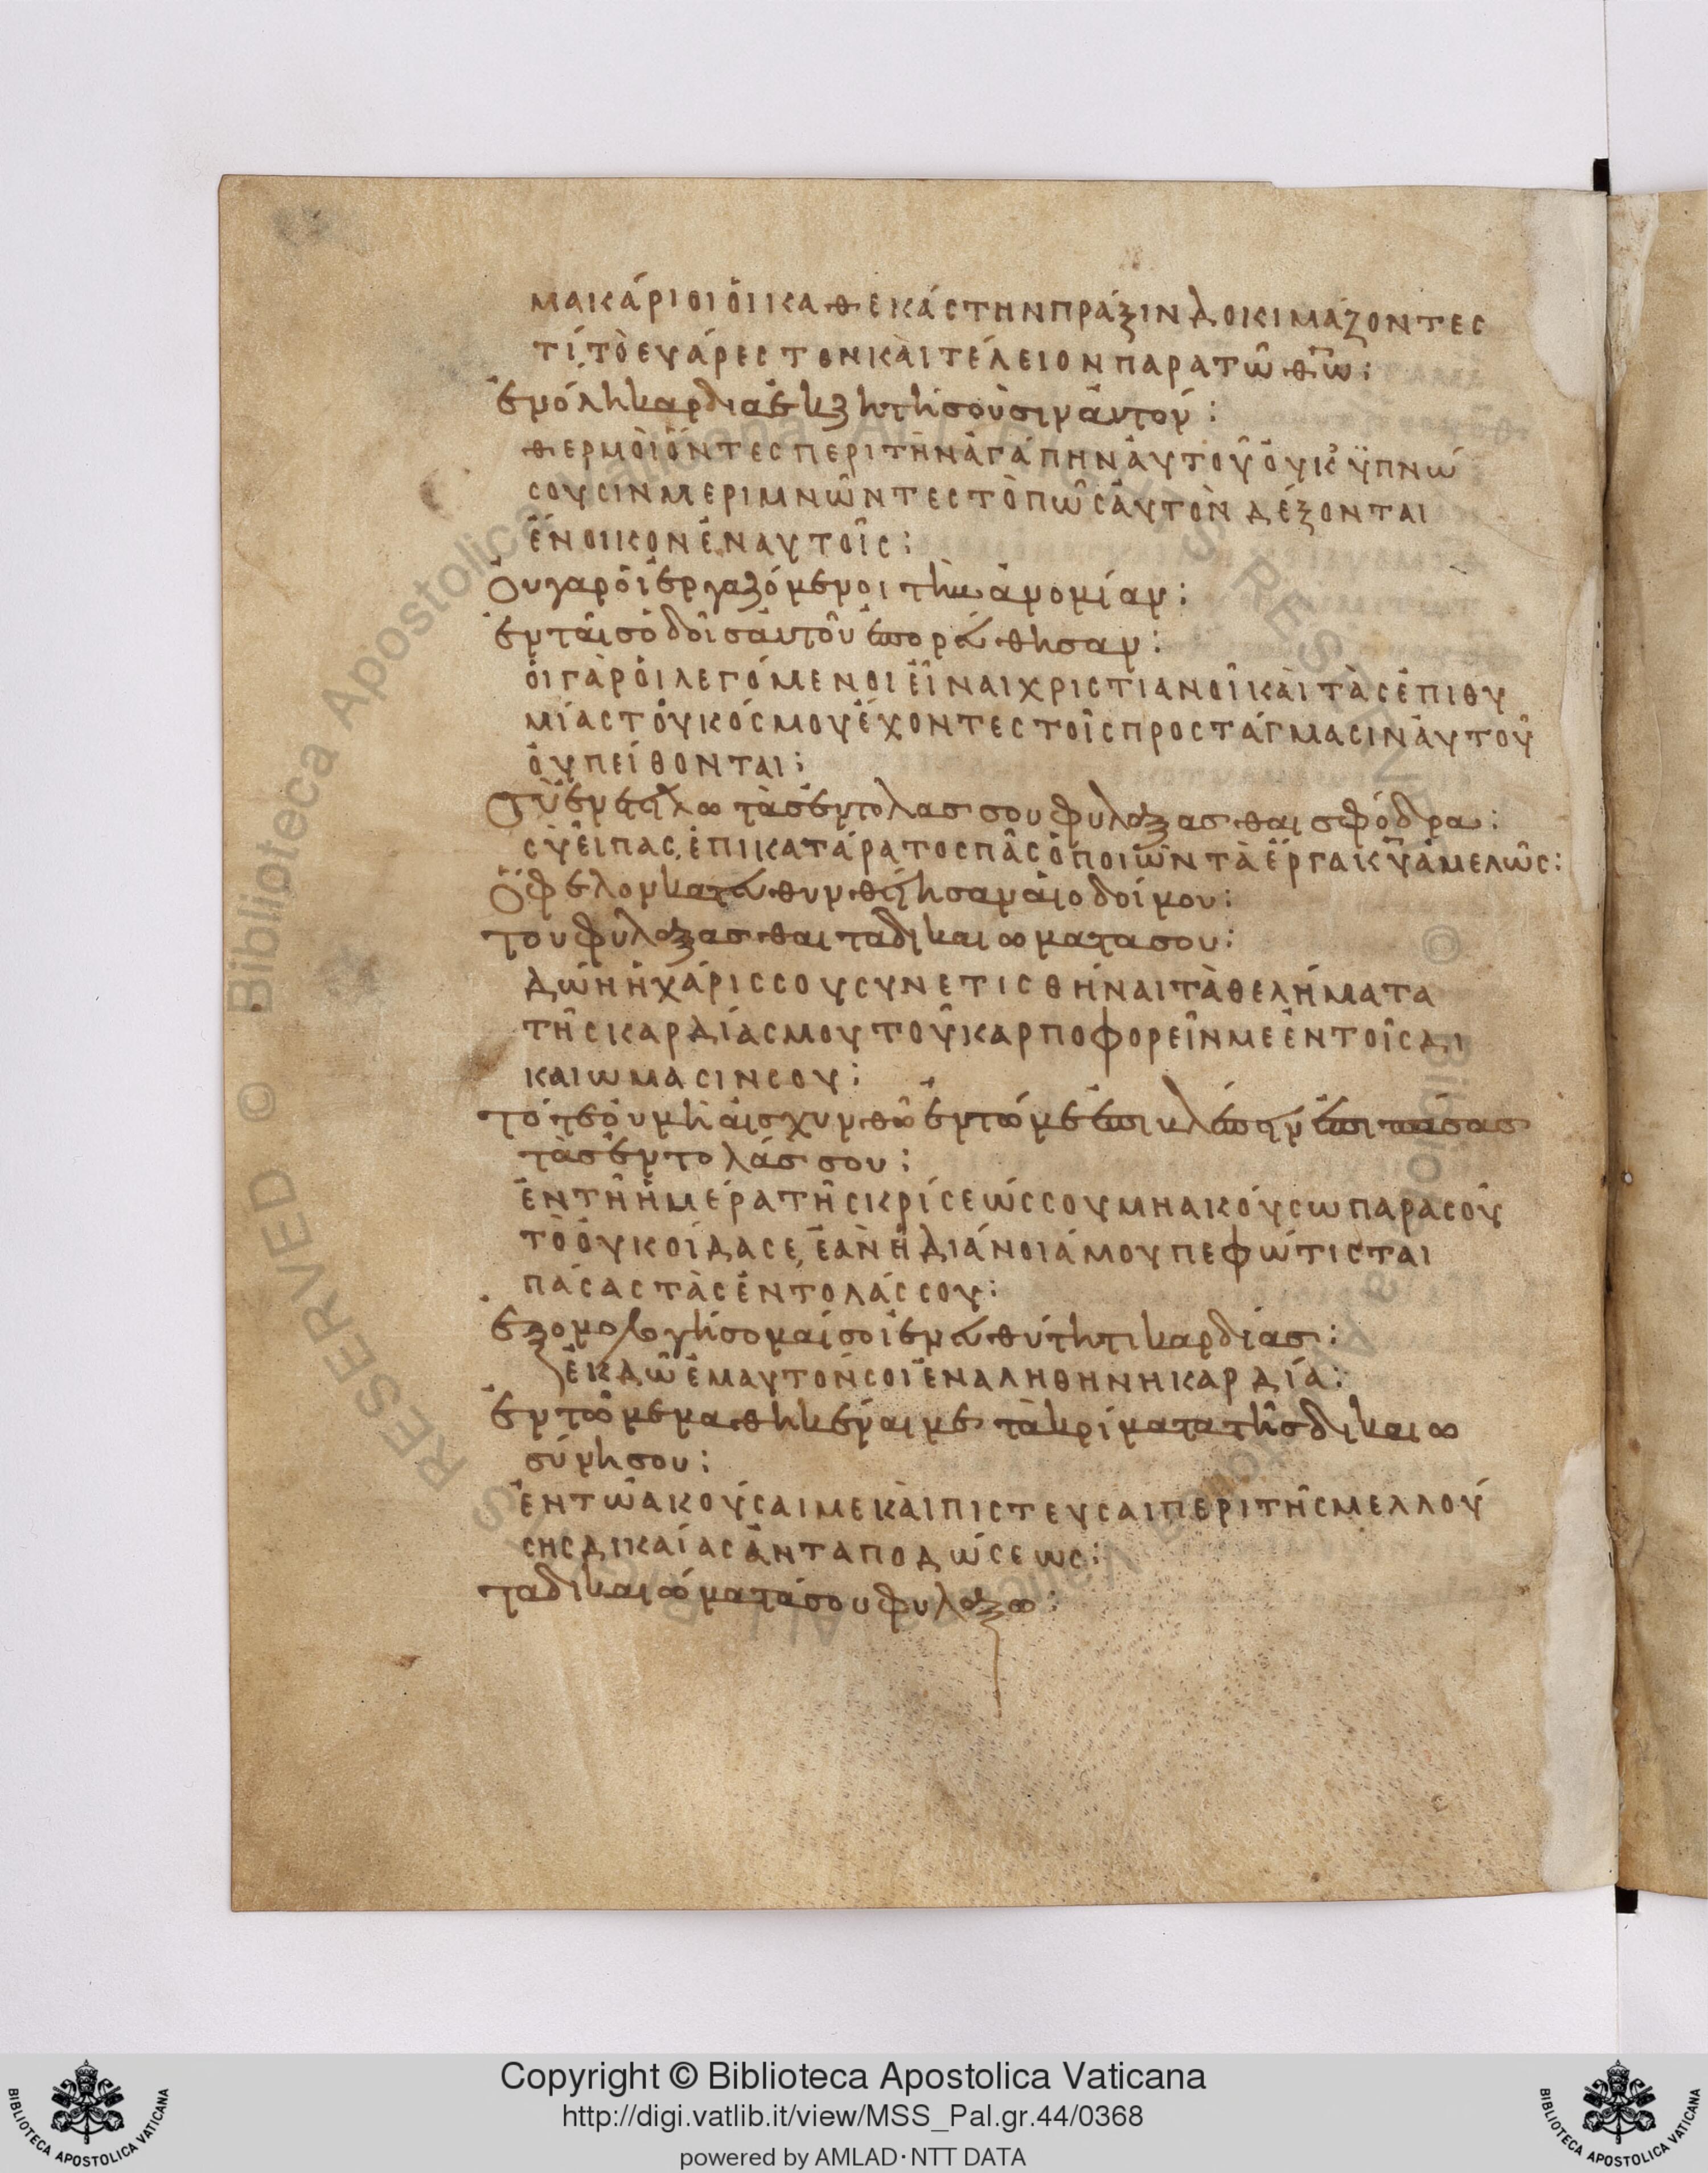 μακάριοι ὁι καθεκάστην πράξιν δοκιμάζοντες
τί τὸ ευάρεστον κὰι τέλειον παρα τῶ θῶ:
ἐν όλη καρδία ἐκζητήσουσιν ἀυτον:
θερμὸι ὄντες περι τὴν ἀγάπην ἀυτοῦ ὀυκ ϋπνώ
σουσιν μεριμνῶντες τὸ πῶς ἀυτὸν δέξονται
ἔνοικον ἐν αυτοῖς:
Ὀυ γαρ ὁι ἐργαζόμενοι τὴν ἀνομίαν:
ἐν ταῖς ὁδοῖς ἀυτοῦ ἐπορεύθησαν:
ὁι γὰρ ὁι λεγόμενοι ἐῖναι χριστιανοῖ κὰι τὰς ἐπιθυ
μίας τόυ κόσμου ἔχοντες τοῖς προστάγμασιν ἀυτοῦ
ὀυ πείθονται:
Σὺ ἐνετείλω τὰς ἐντολας σου φυλάξασθαι σφόδρα:
σὺ ἐῖπας, ἐπικατάρατος πᾶς ὁ ποιῶν τὰ ἔργα κῦ ἀμελῶς:
Ὄφελον κατευθυνθείησαν ἁι οδοί μου:
του φυλάξασθαι τα δικαιωματα σου:
δώη ἡ χάρις σου συνετισθήναι τὰ θελήματα
τῆς καρδίας μου τοῦ καρποφορεῖν με ἐν τοῖς δι
καιωμασιν σου:
τότε ὀυ μὴ ἀισχυνθῶ ἐν τώ με ἐπιβλέπειν ἐπι πάσας
τὰς ἐντολάς σου:
ἐν τῆ ἡμέρα τῆς κρίσεώς σου μη ακόυσω παρα σοῦ
τὸ ὀυκ οίδα σε, ἐὰν ἡ διάνοιά μου πεφώτισται
πάσας τὰς ἐντολάς σου:
ἐξομολογήσομαί σοι ἐν ευθύτητι καρδίας:
ἐκδῶ ἐμαυτόν σοι ἐν αληθηνη καρδία:
ἐν τῶ μεμαθηκέναι με τὰ κρίματα τῆς δικαιω
σύνης σου:
ἐν τῶ ακούσαι με κὰι πιστευσαι περι τῆς μελλού
σης δικαίας ἀνταποδώσεως:
τα δικαιώματά σου φυλάξω:
Copyright © Biblioteca Apostolica Vaticana
http://digi.vatlib.it/view/MSS_Pal.gr.44/0368
powered by AMLAD·NTT DATA